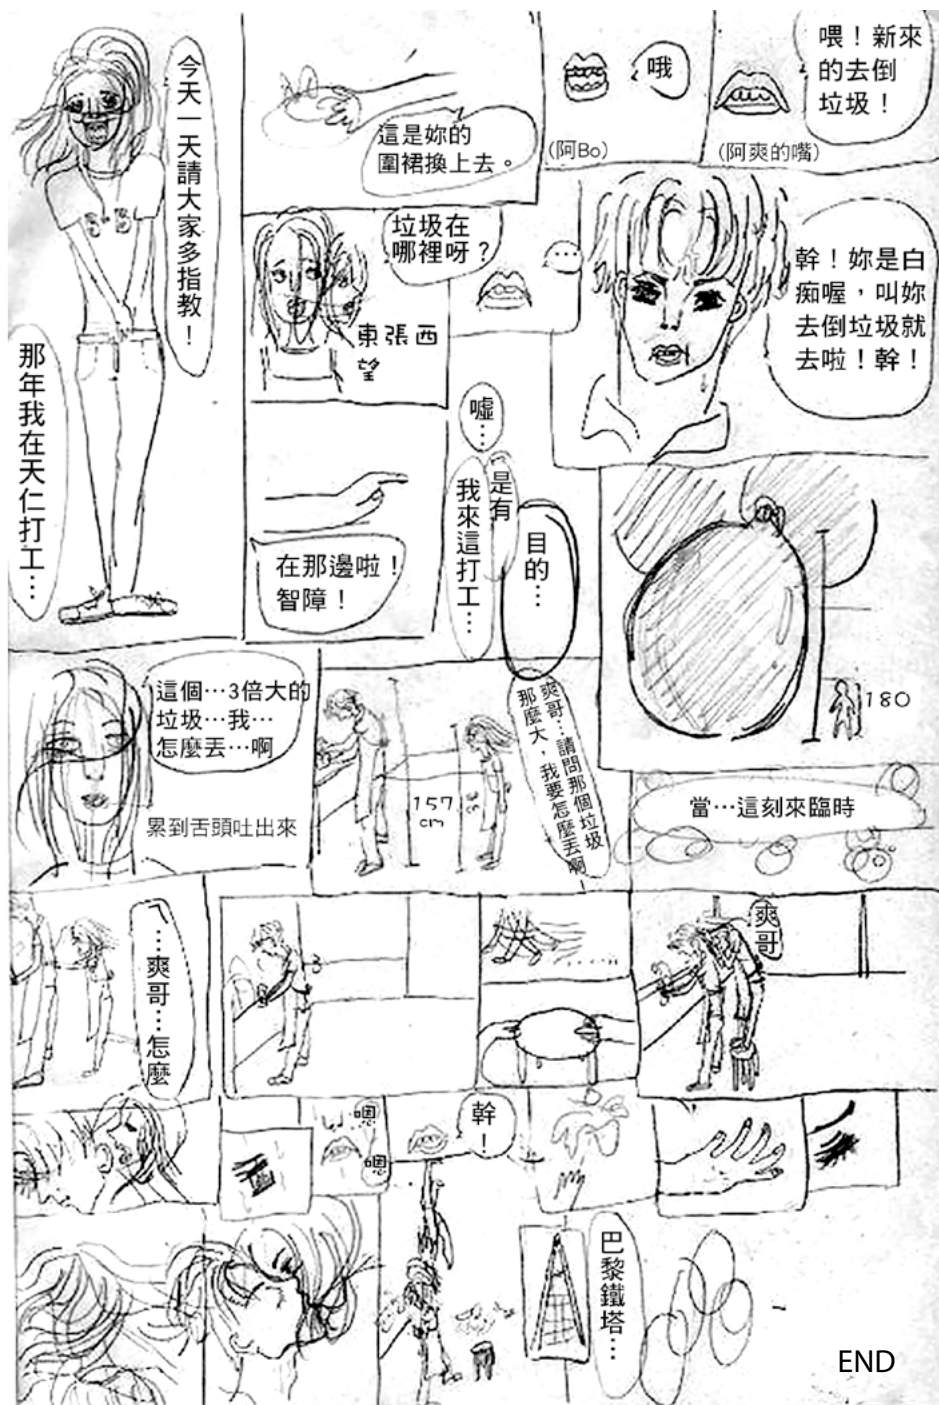 今天一天請大家多指教！
那年我在天仁打工…
這是妳的
圍裙換上去。
哦
(阿Bo)
喂！新來
的去倒
垃圾！
(阿爽的嘴)
垃圾在
哪裡呀？
東張西
望
…
幹！妳是白
痴喔，叫妳
去倒垃圾就
去啦！幹！
在那邊啦！
智障！
噓…
我來這打工…
是有
目的…
180
這個…3倍大的
垃圾…我…
怎麼丟…啊
累到舌頭吐出來
157
cm
爽哥…請問那個垃圾
那麼大，我要怎麼丟啊
當…這刻來臨時
…爽哥…怎麼
爽哥
嗯
嗯
幹！
巴黎鐵塔…
END